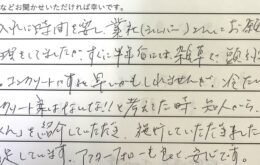 などお聞かせいただければ幸いです。
入れに時間を要し、業社(シルバー)さんにお願
理をしてましたが、すぐに半年后には、雑草で
。コンクリートにすれば早いかもしれませんが、冷たい
クリート来はないな!!と考えてた時、知人から、
くん」を紹介していただき、施行していただきました
足しています。アフターフォローも
安心です。